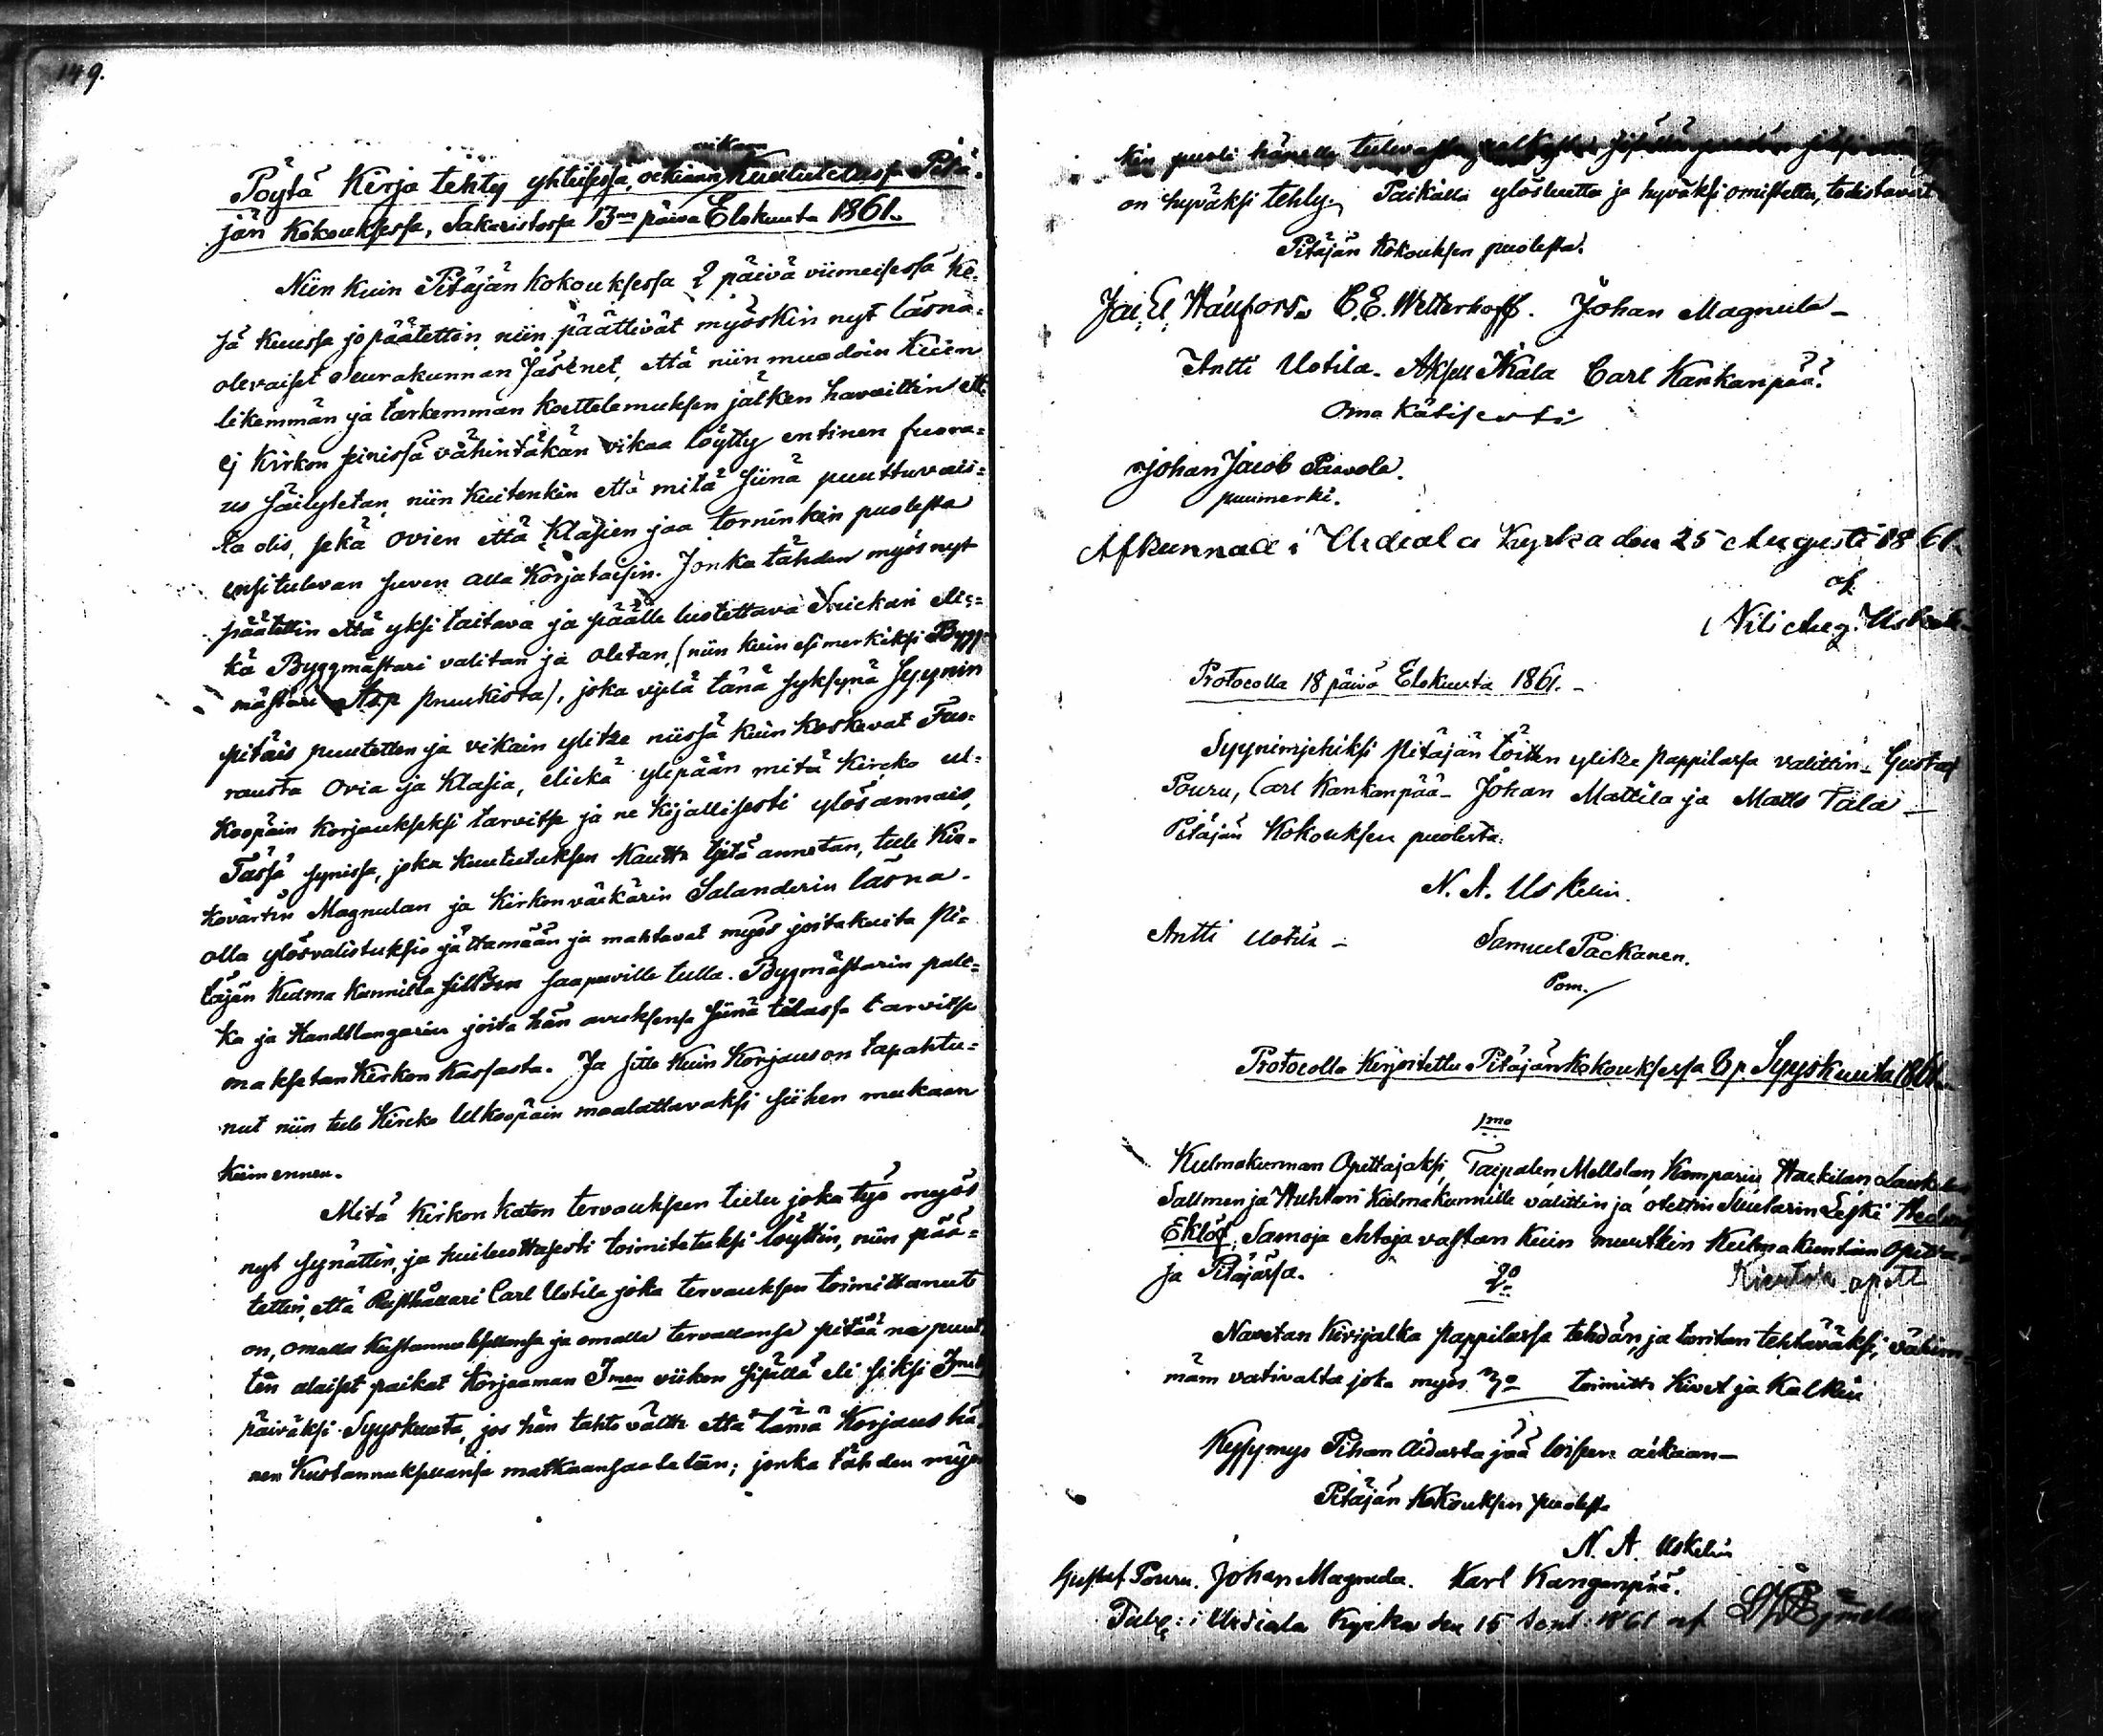 149.
aikaan
Pöytä Kirja tehty yhteisessä, oikiaan Kuulutetussa Pitä-
jän Kokouksessa, Sakaristossa 13na päivä Elokuuta 1861.
Niin kuin Pitäjän kokouksessa 2 päivä viimeisessä Ke-
sä kuussa jo päätettin, niin päättivät myöskin nyt läsnä-
olevaiset seurakunnan Jäsenet, että niin muodoin kuin
likemmän ja tarkemman koettelemuksen jälken havaittin ett.
ej Kirkon seinissä vähintäkän vikaa löytty entinen fuora-
us säilytetan, niin kuitenkin että mitä siinä puuttuvais-
ta olis, sekä ovien että Klasien jaa torninkin puolesta
ensitulevan suven alla Korjataisin. Jonka tähden myös nyt
päätettin että yksi taitava ja päälle luotettava Snickari elic-
kä Byggmästari valitan ja otetan, (niin kuin esimerkiksi Bygg-
mästari Asp Pnukista), joka vielä tänä syksynä Syynin
pitäis puutetten ja vikain ylitze niissä kuin koskevat Fuo-
rausta ovia ja Klasia, elickä ylipään mitä Kircko ul-
koopäin korjaukseksi tarvitse ja ne kijallisesti ylösannais,
Tässä synissä, joka kuulutuksen kautta tietä annetan, tule Kir-
kovärtin Magnulan ja Kirkonväkärin Salanderin läsna-
olla ylösvalistuksia jättämään ja mahtavat myös joitakuita Pi-
täjän Kulma kunnilta sillzen saapuville tulla. Bygmästarin palk-
ka ja Handtlangarin joita hän avuksensa siinä tilassa tarvitse
maksetan Kirkon Kassasta. Ja sitte kuin Korjaus on tapahtu-
nut niin tule Kircko Ulkoopäin maalattavaksi siihen mukaan
kuin ennen.
Mitä Kirkon katon tervauksen tulee joka työ myös
nyt synättin, ja huiluottasesti toimitetuksi löyttin, niin pää-
tettin, että Rusthållari Carl Uotila joka tervauksen toimittanut
on, omalla kustannuksellansa ja omalla tervallansa pitää na puut-
ten alaiset paikat korjaaman 3men viikon sisällä eli siksi
päiväksi Syyskuuta, jos hän tahto välttä että tämä Korjaus hä-
nen Kustannuksellansa matkaansaatetan; jonka tähden myös
kin puoli hänelle tulevasta palkasta
on hyväksi tehty. Paikalla ylösluettu ja hyväksi omistettu, todistavat
Pitäjän Kokouksen puolesta.
C. E. Wetterhoff. Johan Magnula
Antti Uotila. Aksell Kala Carl Kankanpää.
Oma kätisesti
Johan Jacob Paavola.
puumerki.
Afkunnadt i Urdiala Kyrka den 25 Augusti 1861.
af
Nils Aug. Uskelin
Protocolla 18 päivä Elokuuta 1861.
Syynimjehiksi Pitäjän töitten ylitze Pappilassa valittin Gustaf
Pouru, Carl Kankanpää Johan Mattila ja Matts Tala
Pitäjän Kokouksen puolesta.
N. A. Uskelin.
Antti Uotila
Samuel Packanen.
Pom.
Protocolla Kirjoitettu Pitäjänkokouksessa 8 p. Syyskuuta 1861.
1mo
Kulmakunnan Opettajaksi, Taipalen Mellolan Kamparin Hackilan
Sallmen ja Huhtan Kulmakunnille valittin ja otettin Leski Hedvig
Eklöf, Samoja ehtoja vastan kuin muutkin Kulmakuntain opetta-
ja Pitäjässä.
2o
Navetan Kivijalka Pappilassa tehdän, ja tarjtan tehtäväksi, vähim-
män vativalta joka myös toimitta Kivet ja Kalkin
3o
Kysymys Pihan Aidasta jää toisen aikaan
Pitäjän Kokouksen puolesta
N. A. Uskelin
Gustaf Pouru. Johan Magnula. Karl Kanganpää.
Publ: i Urdiala Kyrka den 15 Sept. 1861 af